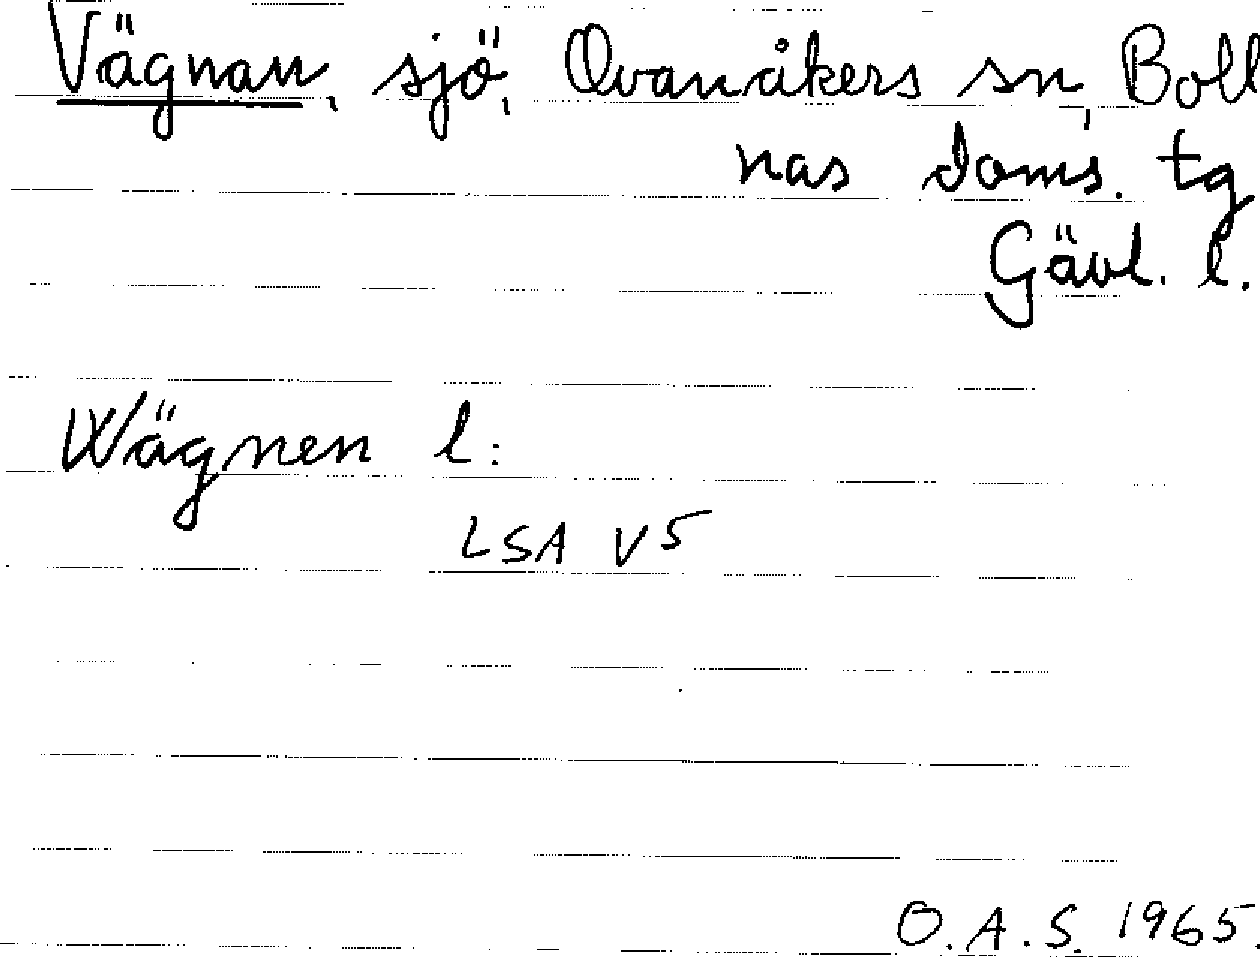 Vägnan, sjö, Ovanåkers sn, Boll
nas doms. tg
Gävl. l.
Wägnen l:
LSA V5
O.A.S. 1965.